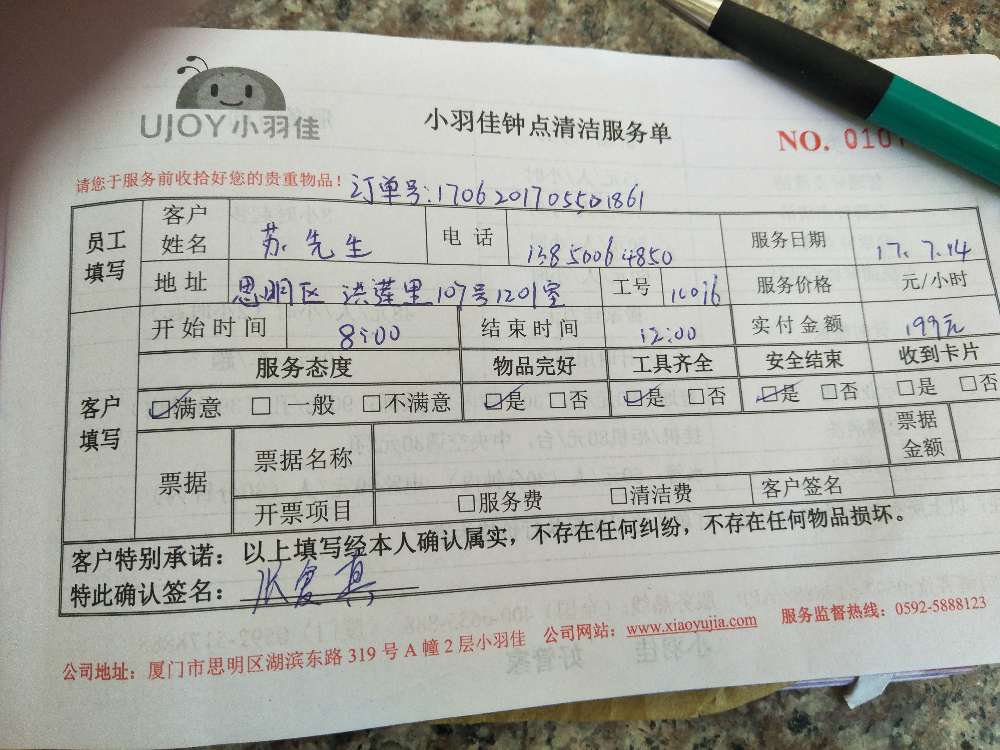 UJOY小羽佳
小羽佳钟点清洁服务单
NO. 010
请您于服务前收拾好您的贵重物品！ 订单号:1706201705501861
员工填写 客户姓名 苏先生 电话 13850064850 服务日期 17.7.14
地址 思明区 洪莲里107号1201室 工号 服务价格 元/小时
开始时间 8:00 结束时间 12:00 实付金额 199元
客户填写 服务态度 物品完好 工具齐全 安全结束 收到卡片
☑满意 □一般 □不满意 ☑是 □否 ☑是 □否 ☑是 □否 □是 □否
票据 票据名称 票据金额
开票项目 □服务费 □清洁费 客户签名
客户特别承诺：以上填写经本人确认属实，不存在任何纠纷，不存在任何物品损坏。
特此确认签名：
公司地址：厦门市思明区湖滨东路 319 号 A 幢 2 层小羽佳 公司网站：www.xiaoyujia.com 服务监督热线：0592-5888123